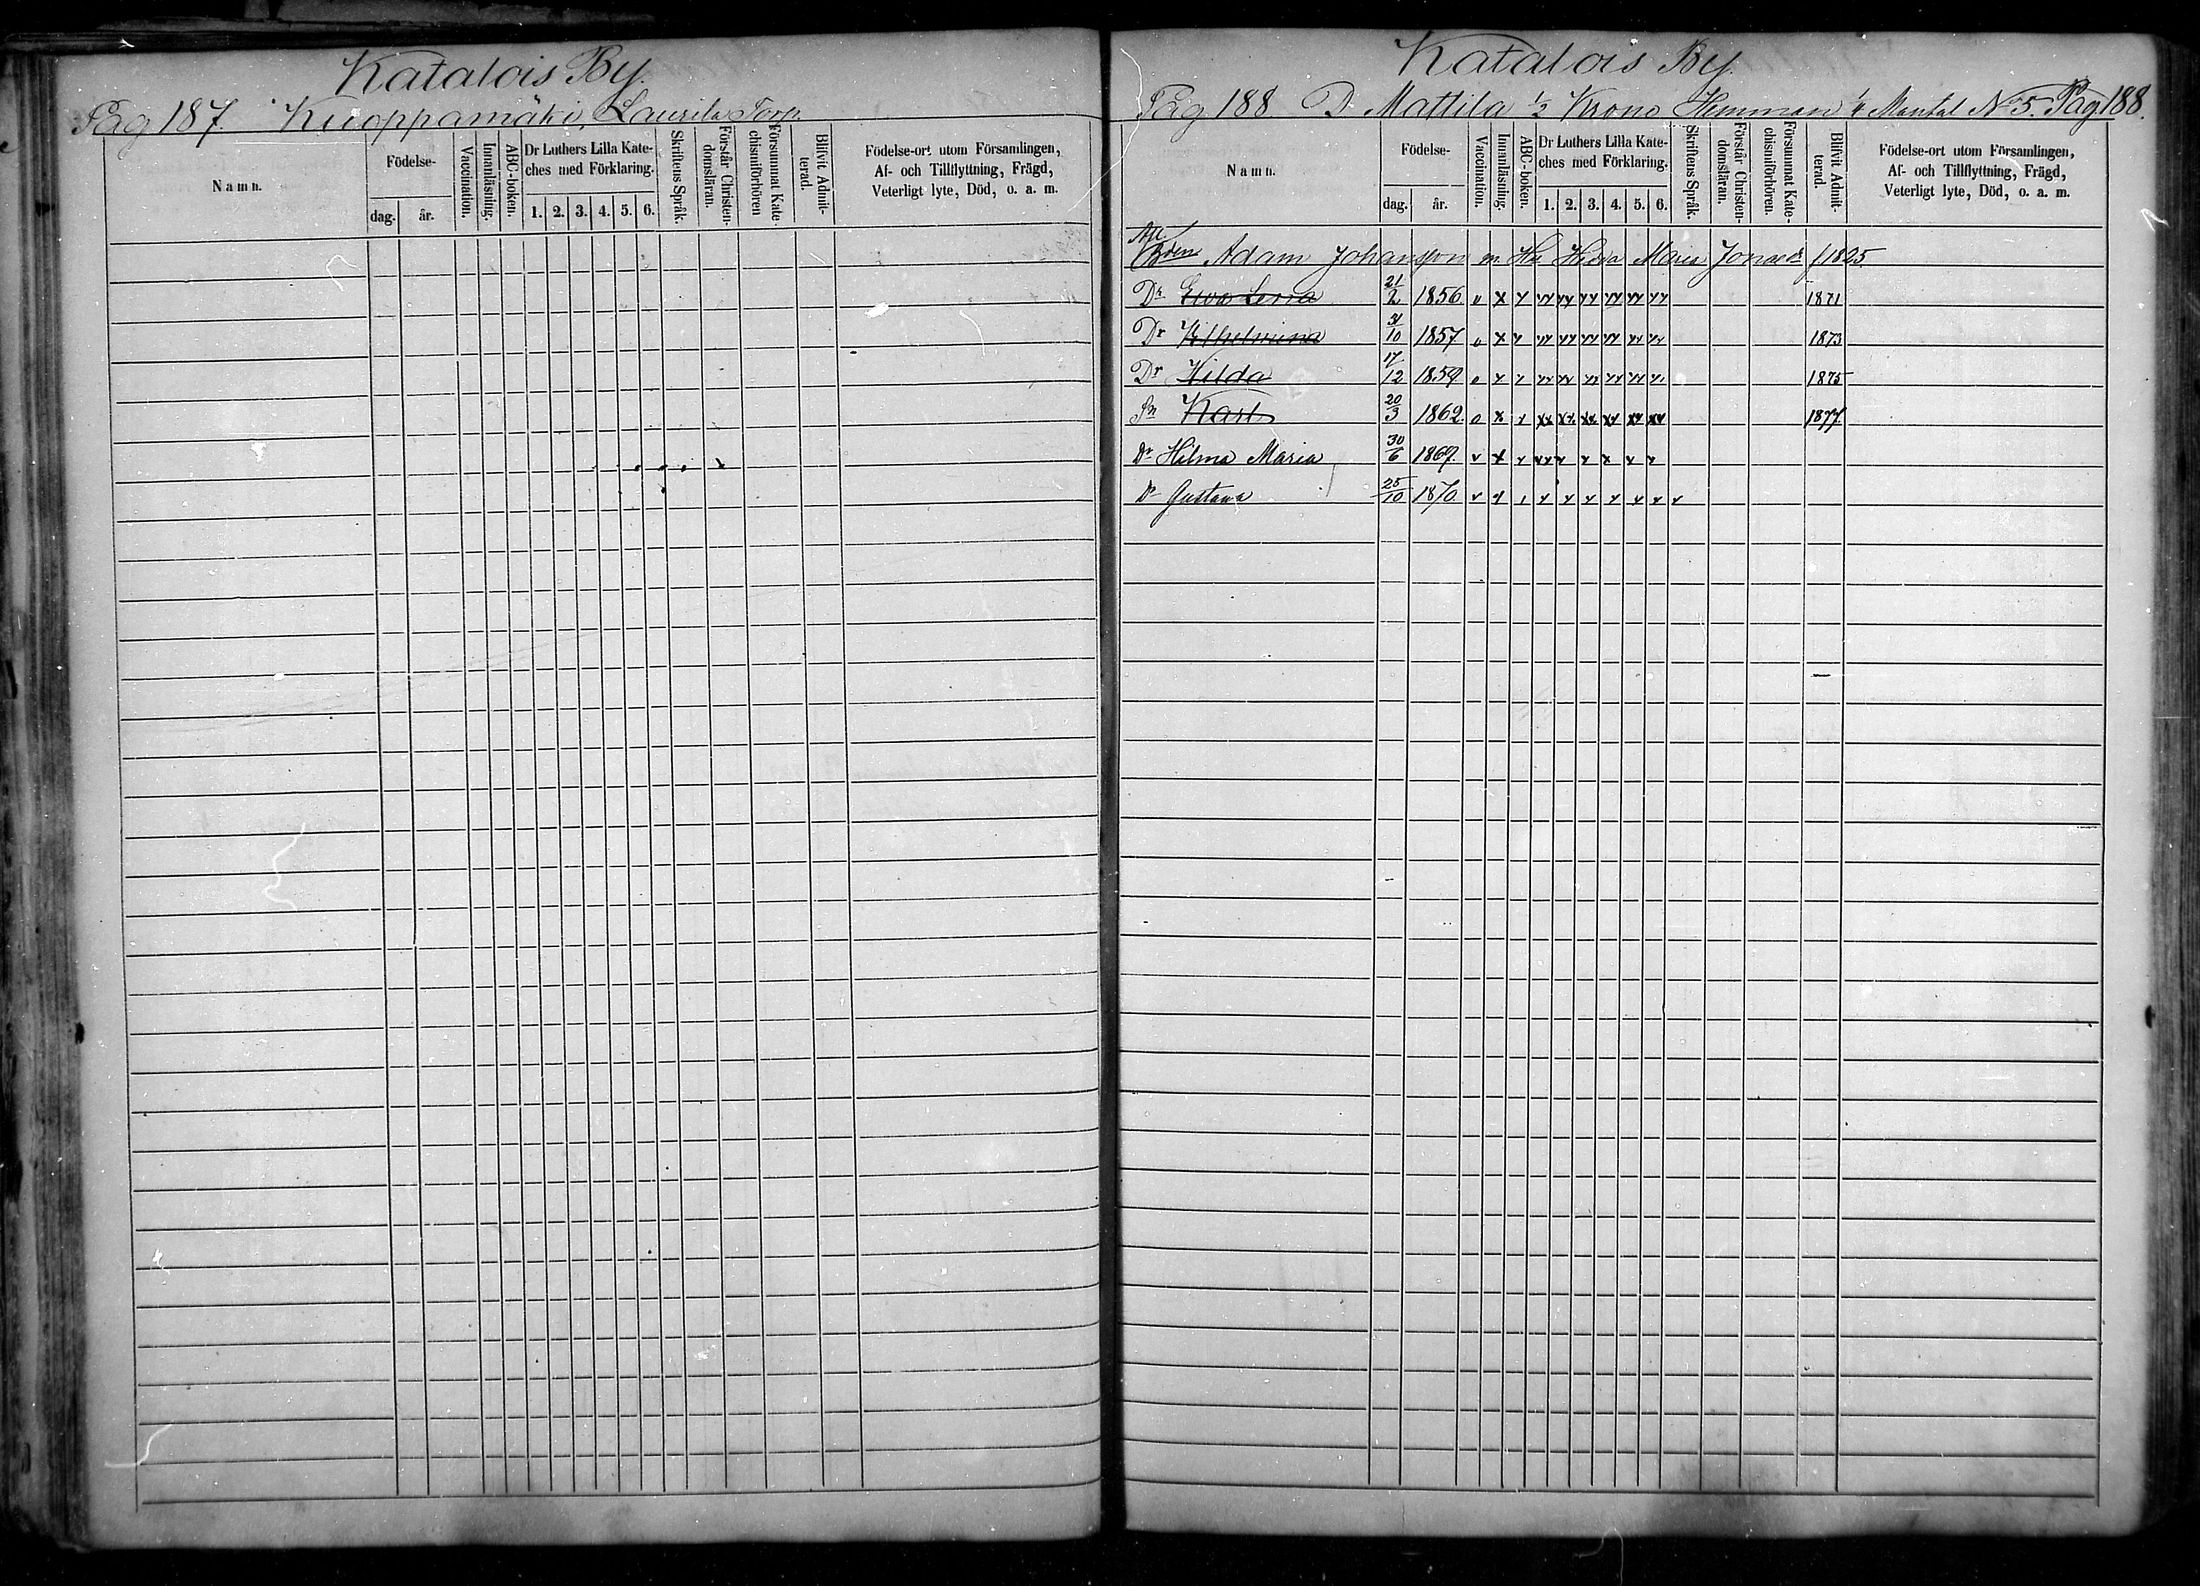 Katalois By.
Pag 187. Kuoppamäki, Laurila Torp.
Namn.
Födelse-
dag.
år.
Vaccination.
Innanläsning.
ABC-boken.
Dr Luthers Lilla Kate-
ches med Förklaring.
1. 2. 3. 4. 5. 6.
Skriftens Språk.
Förstår Christen-
domsläran.
Försummat Kate-
chismiförhören
Blifvit Admit-
terad.
Födelse-ort utom Församlingen,
Af- och Tillflyttning, Frägd,
Veterligt lyte, Död, o. a. m.
Katalois By.
Pag 188 D. Mattila 1/2 Krono Hemman 1/4 Mantal No 5. Pag 188.
Namn.
Födelse-
dag.
år.
Vaccination.
Innanläsning.
ABC-boken.
Dr Luthers Lilla Kate-
ches med Förklaring.
1. 2. 3. 4. 5. 6.
Skriftens Språk.
Förstår Christen-
domsläran.
Försummat Kate-
chismiförhören.
Blifvit Admit-
terad.
Födelse-ort utom Församlingen,
Af- och Tillflyttning, Frägd,
Veterligt lyte, Död, o. a. m.
Bden Adam Johansson m Hu Hedva Maria Jonaed. f 1825
Dr Ewa Lena 21/2 1856 1871
Dr Wilhelmina 31/10 1857 1873
Dr Hilda 17/12 1859 1875
Sn Karl 20/3 1862. 1877.
Dr Hilma Maria 30/6 1867.
Dr Gustava 25/10 1870